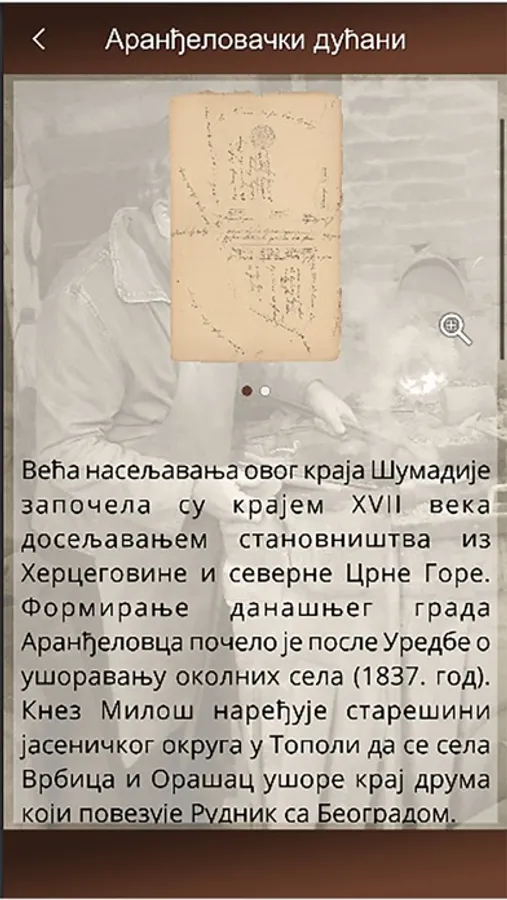 Аранђеловачки дућани
Већа насељавања овог краја Шумадије
започела су крајем XVII века
досељавањем становништва из
Херцеговине и северне Црне Горе.
Формирање данашњег града
Аранђеловца почело је после Уредбе о
ушоравању околних села (1837. год).
Кнез Милош наређује старешини
јасеничког округа у Тополи да се села
Врбица и Орашац ушоре крај друма
који повезује Рудник са Београдом.